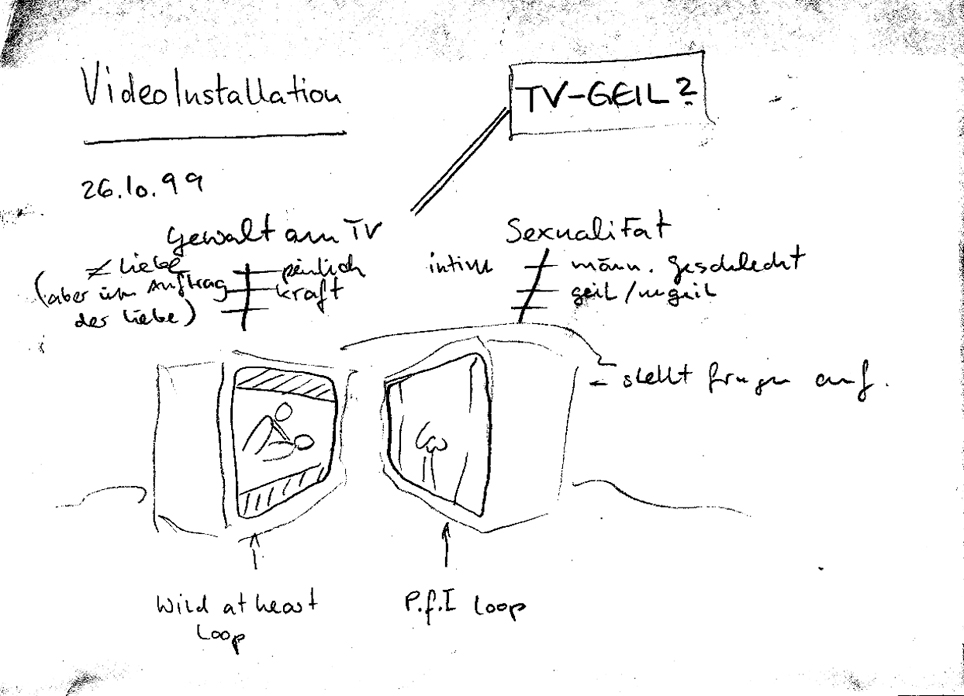 VideoInstallation
TV-GEIL?
26.10.99
Gewalt am TV
Sexualität
≠ Liebe
(aber im Auftrag
der Liebe)
peinlich
kraft
intim
männ. Geschlecht
geil/ungeil
- stellt fragen auf.
Wild at heart
Loop
P.f.I loop